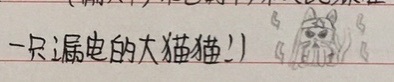 一只漏电的大猫猫!)